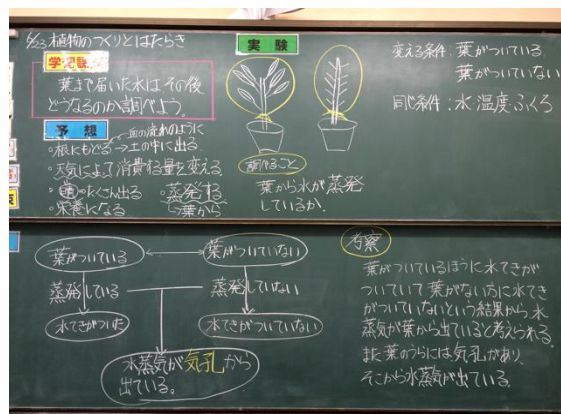 6/23 植物のつくりとはたらき
学習課題
葉まで届いた水はその後
どうなるのか調べよう。
予想
血の流れのように
・根にもどる→土の中に出る
・天気によって消費する量を変える
・たくさん出る
・栄養になる
・蒸発する
葉から
実験
調べること
葉から水が蒸発
しているか。
変える条件:葉がついている
葉がついていない
同じ条件:水・温度・ふくろ
葉がついている
葉がついていない
蒸発している
蒸発していない
水てきがついた
水てきがついていない
水蒸気が気孔から
出ている。
考察
葉がついているほうに水てきが
ついていて葉がない方に水てき
がついていないという結果から、水
蒸気が葉から出ていると考えられる。
また葉のうらには気孔があり、
そこから水蒸気が出ている。